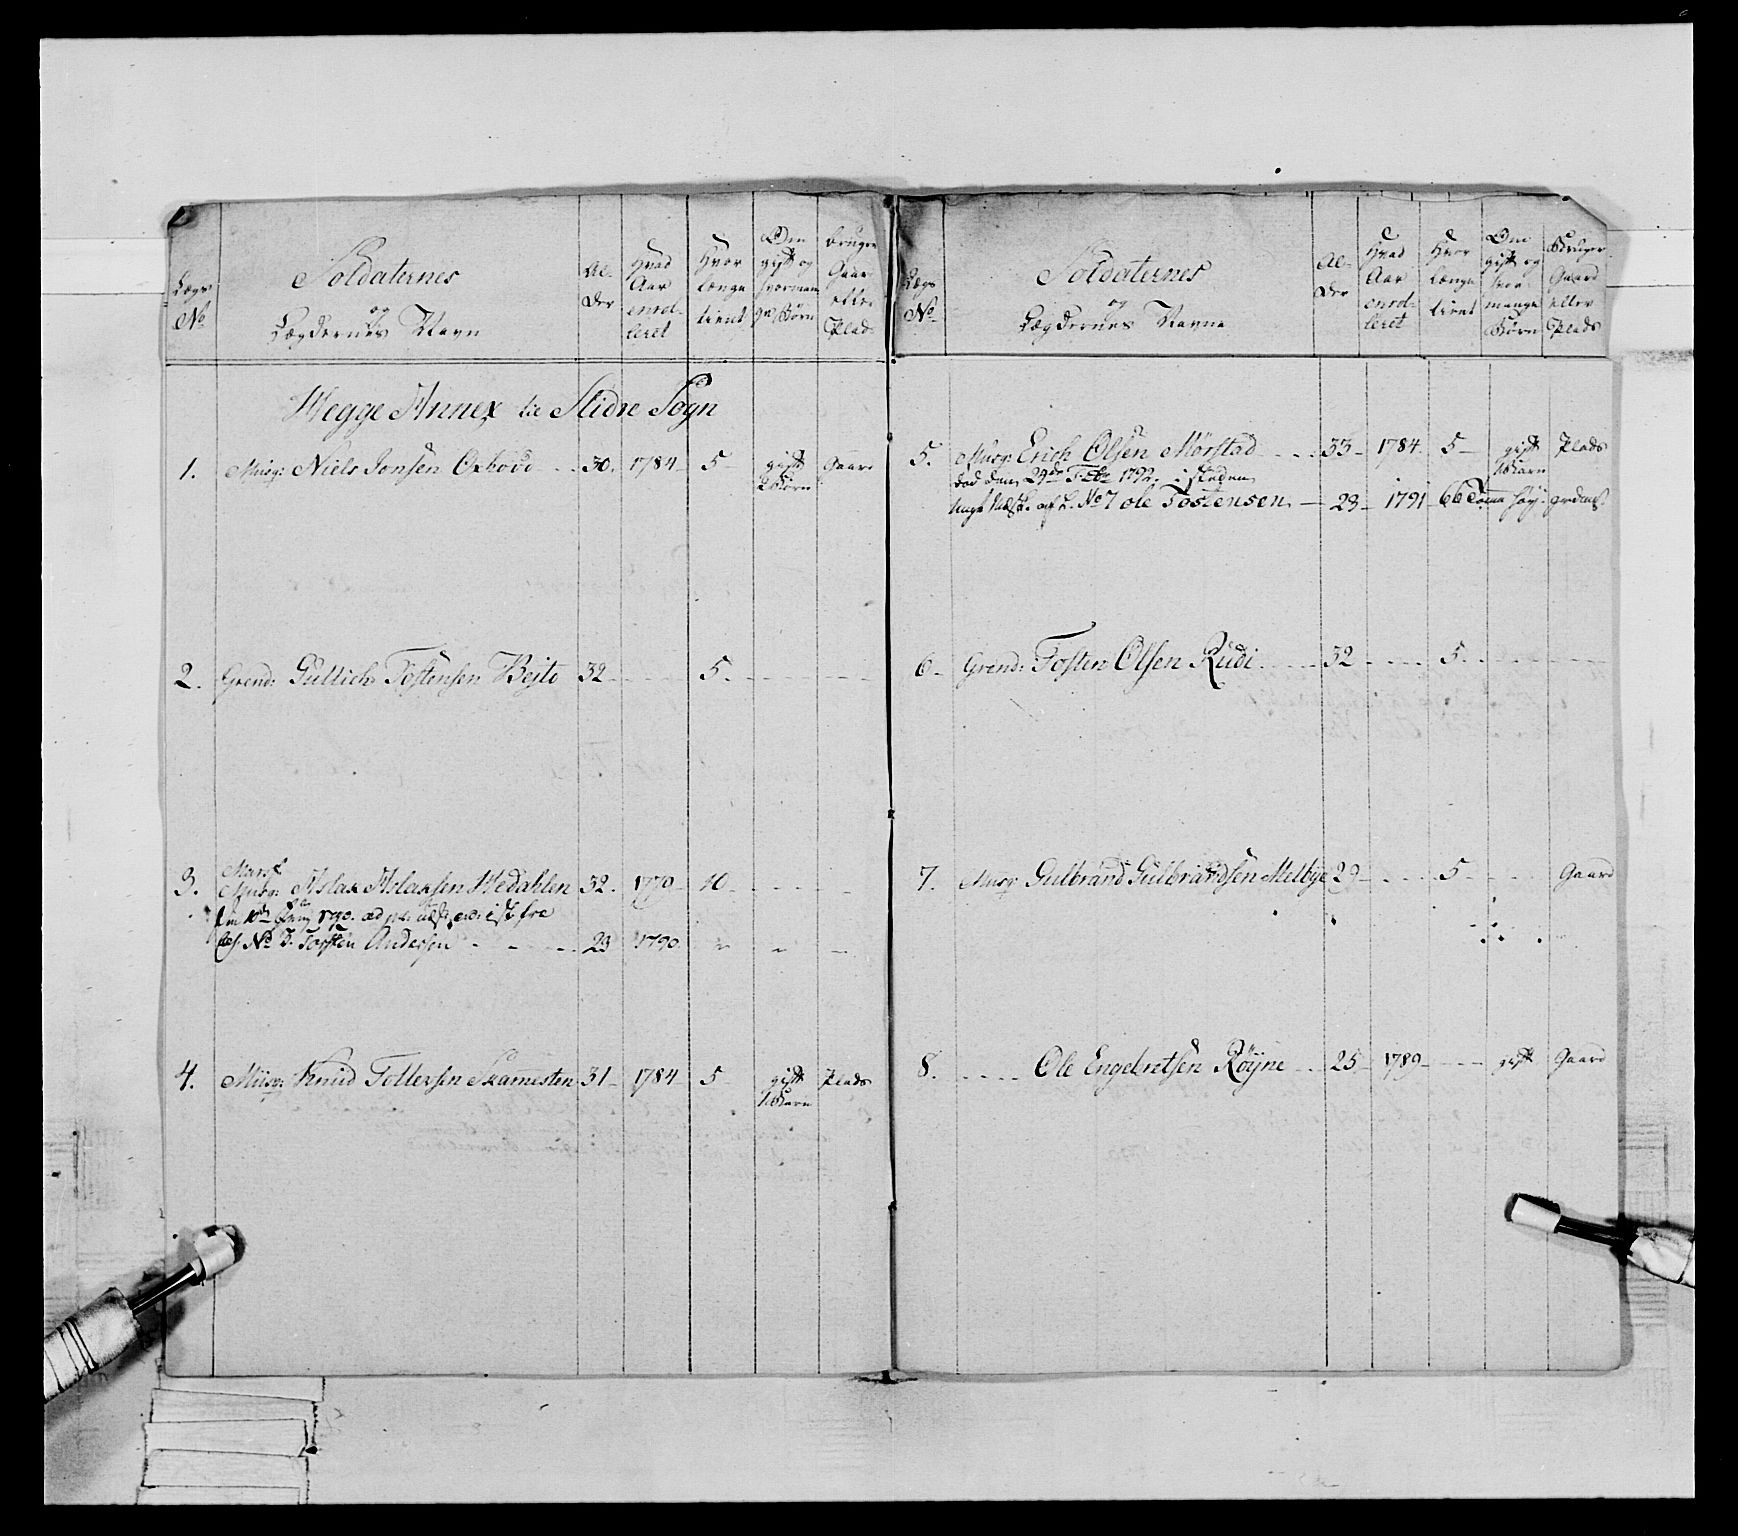 Lægs No
Soldaternes og Lægdernes Navn
Alder
Hvad Aar enrolleret
Hvor længe tient
Om gift og hvormange Børn
Bruger Gaard eller Plads
Hegge Annex til Slidre Sogn
1. Musq: Niels Jonsen Oxhovd 30. 1784 5 gift 2 Børn Gaard
2. Grend: Gullich Tostensen Bejto 32 5.
3. Musq: Aslax Aslaxsen Hedahlen 32. 1779 10
No 3. Torsten Andersen 23 1790.
4. Musq: Knud Tollersen Skamesten 31 1784 5 gift 1 Barn Plads
Lægs No
Soldaternes og Lægdernes Navne
Alder
Hvad Aar enrolleret
Hvor længe tient
Om gift og hvormange Børn
Bruger Gaard eller Plads
5. Musq: Erich Olsen Mörstad 33 1784 5 gift 1 Barn Plads
död den 24de Febr 1792. i steden
af L. No 7 Ole Tostensen 23 1791
6. Grend: Tosten Olsen Rudi 32 5.
7. Musq: Gulbrand Gulbrandsen Melbye 29 5 Gaard
8. Ole Engebretsen Röyne 25 1789 gift Gaard